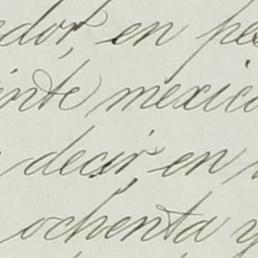 edor, en pes
inte mexica
decir en
ochenta y